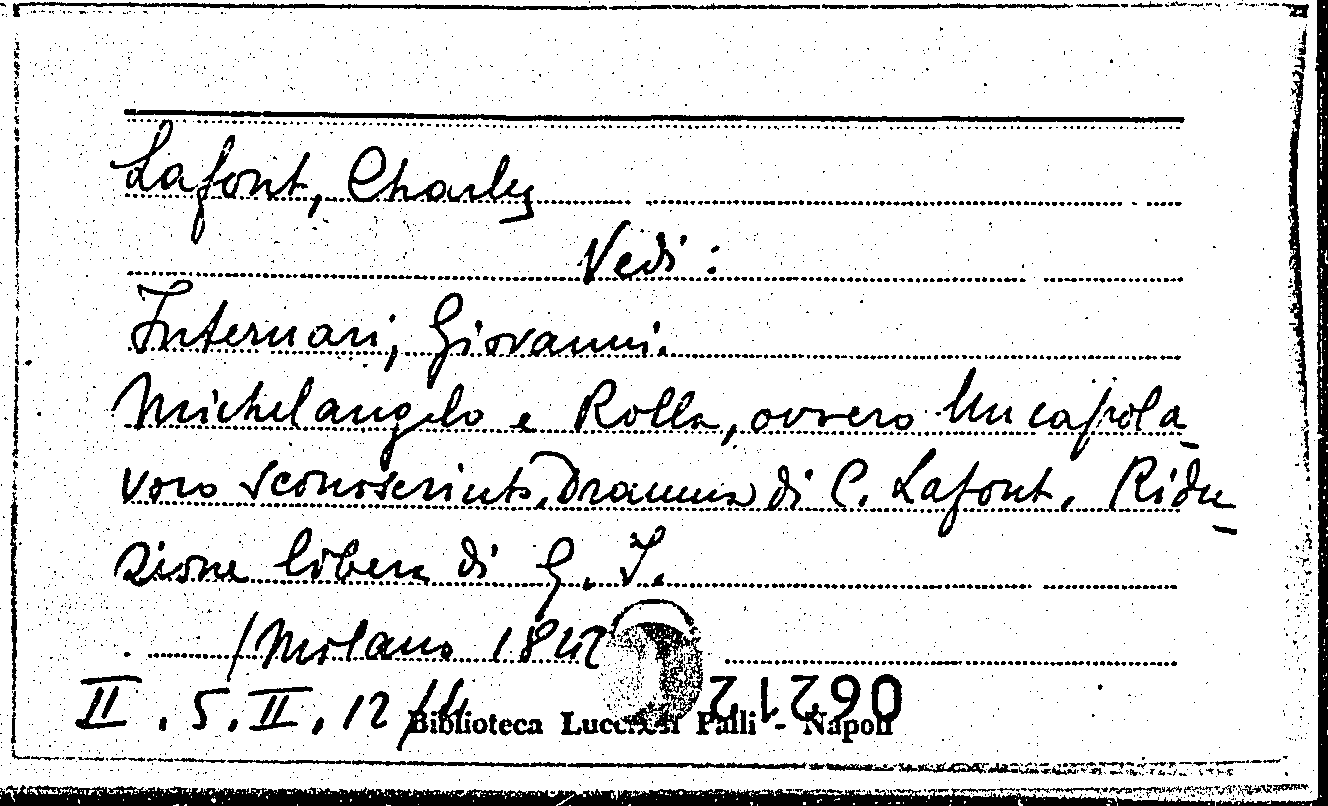 Lafont, Charles
Vedi :
Internari, Giovanni.
Michelangelo e Rolla, ovvero Un capola_
voro sconosciuto. Dramma di C. Lafont. Ridu_
zione libera di G. I.
(Milano 1842
II. 5. II. 12/4
Biblioteca Lucchesi Palli - Napoli
06212